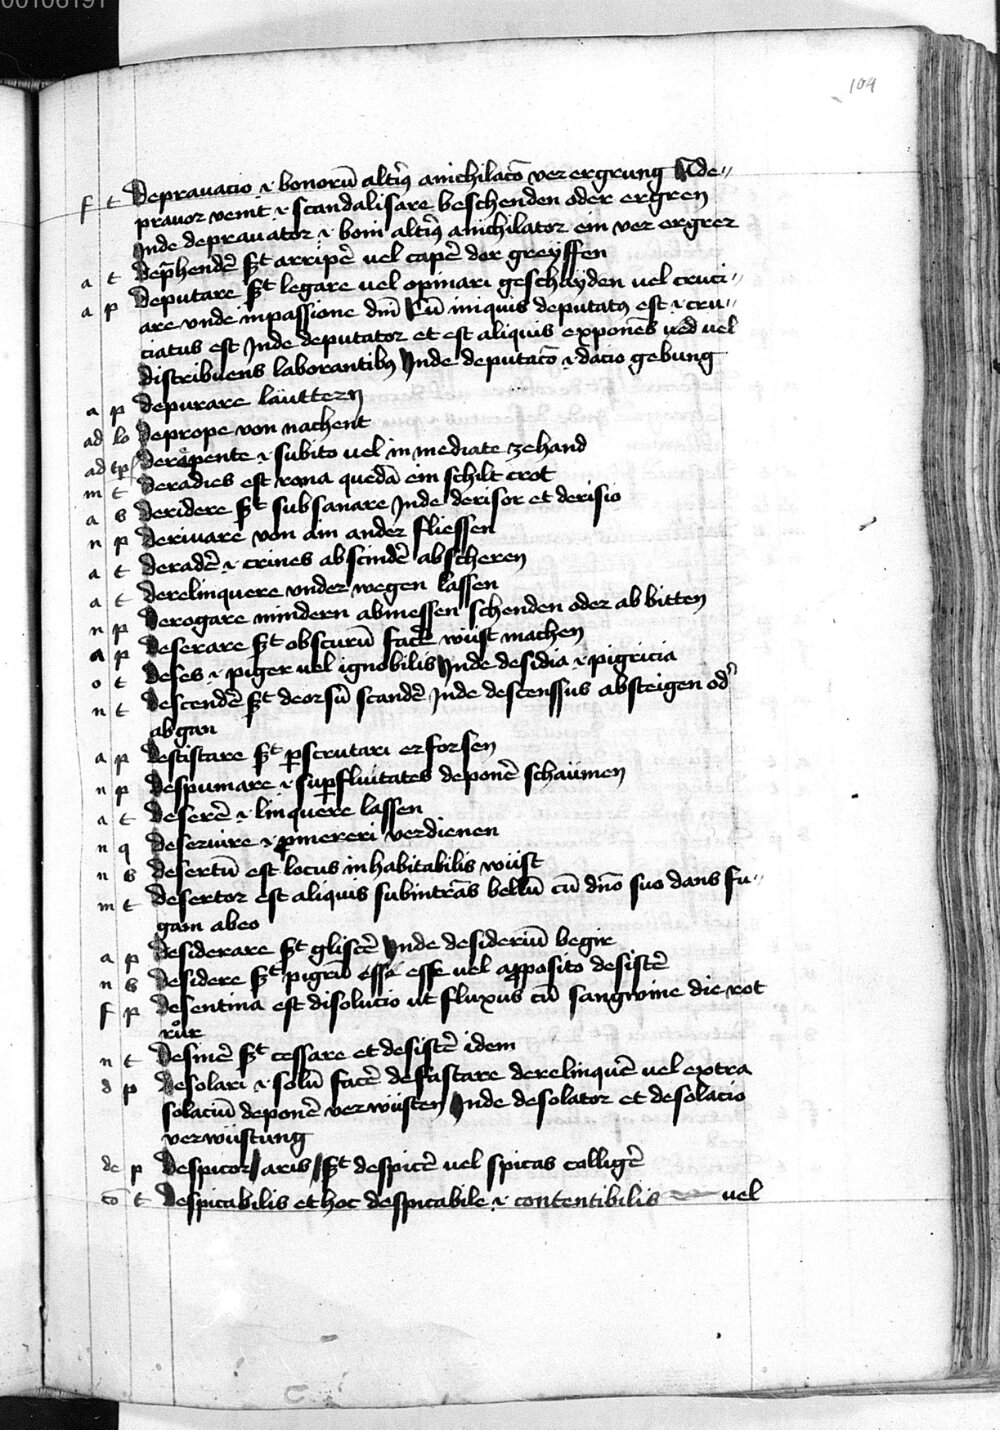 00106191
104
f t Deprauacio ÷ bonorū altiꝰ anichilacō ver ergrung A de-
prauor venit ÷ scandalisare beschenden oder ergren
Inde deprauator ÷ boni altiꝰ anichilator ein ver ergrer
a t Dep̄hendē s̄t arripē uel capē der greyffen
a p Deputare s̄t legare uel opinari geschayden uel cruci-
are vnde in passione dnī Cū iniquis deputatꝰ est ÷ cru-
ciatus est Inde deputator et est aliquis exponēs uel
distribuens laborantibꝰ Inde deputacō ÷ dacio gebung
a p depurare läuttern
ad lo Deprope von nachent
ad tp̄ Derepente ÷ subito uel in mediate zehand
m t Deradies est rana quedā ein schilt crot
a s Deridere s̄t subsanare Inde derisor et derisio
n p Deriuare von ain ander fliessen
a t deradē ÷ crines abscindē abscheren
a t derelinquere vnder wegen lassen
n p Derogare mindern abmessen schenden oder ab bitten
a p Deserare s̄t obscurū facē wüst machen
o t Deses ÷ piger uel ignobilis Inde desidia ÷ pigricia
n t Descendē s̄t deorsū scandē Inde descenssus absteigen od̛
abgan
a p destistare s̄t ꝑscrutari erforsen
n p Despumare ÷ suꝑfluitates deponē schäumen
a t Deserē ÷ linquere lassen
n q Deseruire ÷ ꝓmereri verdienen
n s Desertū est locus inhabitabilis wüst
m t Desertor est aliquis subintrās bellū cū dnō suo dans fu-
gam abeo
a p Desiderare s̄t gliscē Inde desideriū begir
n s Desidere s̄t pigrū esse esse uel a ꝓposito desistē
f p Desentina est disolucio ut fluxus cū sangwine die rot
růr
n t Desinē s̄t cessare et desistē idem
d p Desolari ÷ solū facē defastare derelinquē uel extra
solaciū deponē verwüsten Inde desolator et desolacio
verwüstung
de p Despicor / aris / s̄t despicē uel spicas colligē
cō t Despicabilis et hoc despicabile ÷ contentibilis uel